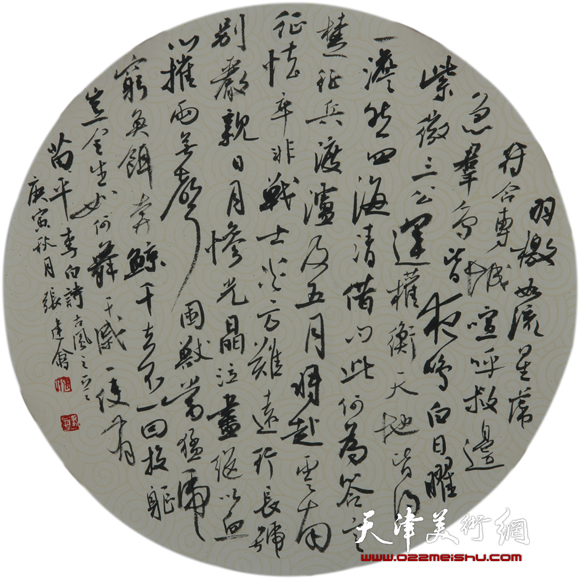 羽檄如流星虎
符合專城喧呼救邊
急羣鳥皆夜鳴白日曜
紫微三公運權衡天地皆得
一澹然四海清借问此何為答言
楚征兵渡瀘及五月將赴雲南
征怯卒非戰士炎方難遠行長號
别嚴親日月慘光晶泣盡繼以血
心摧兩無聲困獸當猛虎
窮魚餌奔鯨千去不一回投軀
豈全生如何舞干戚一使有
苗平 李白詩古風之
庚寅秋月 張建會
天津美術網
www.022meishu.com